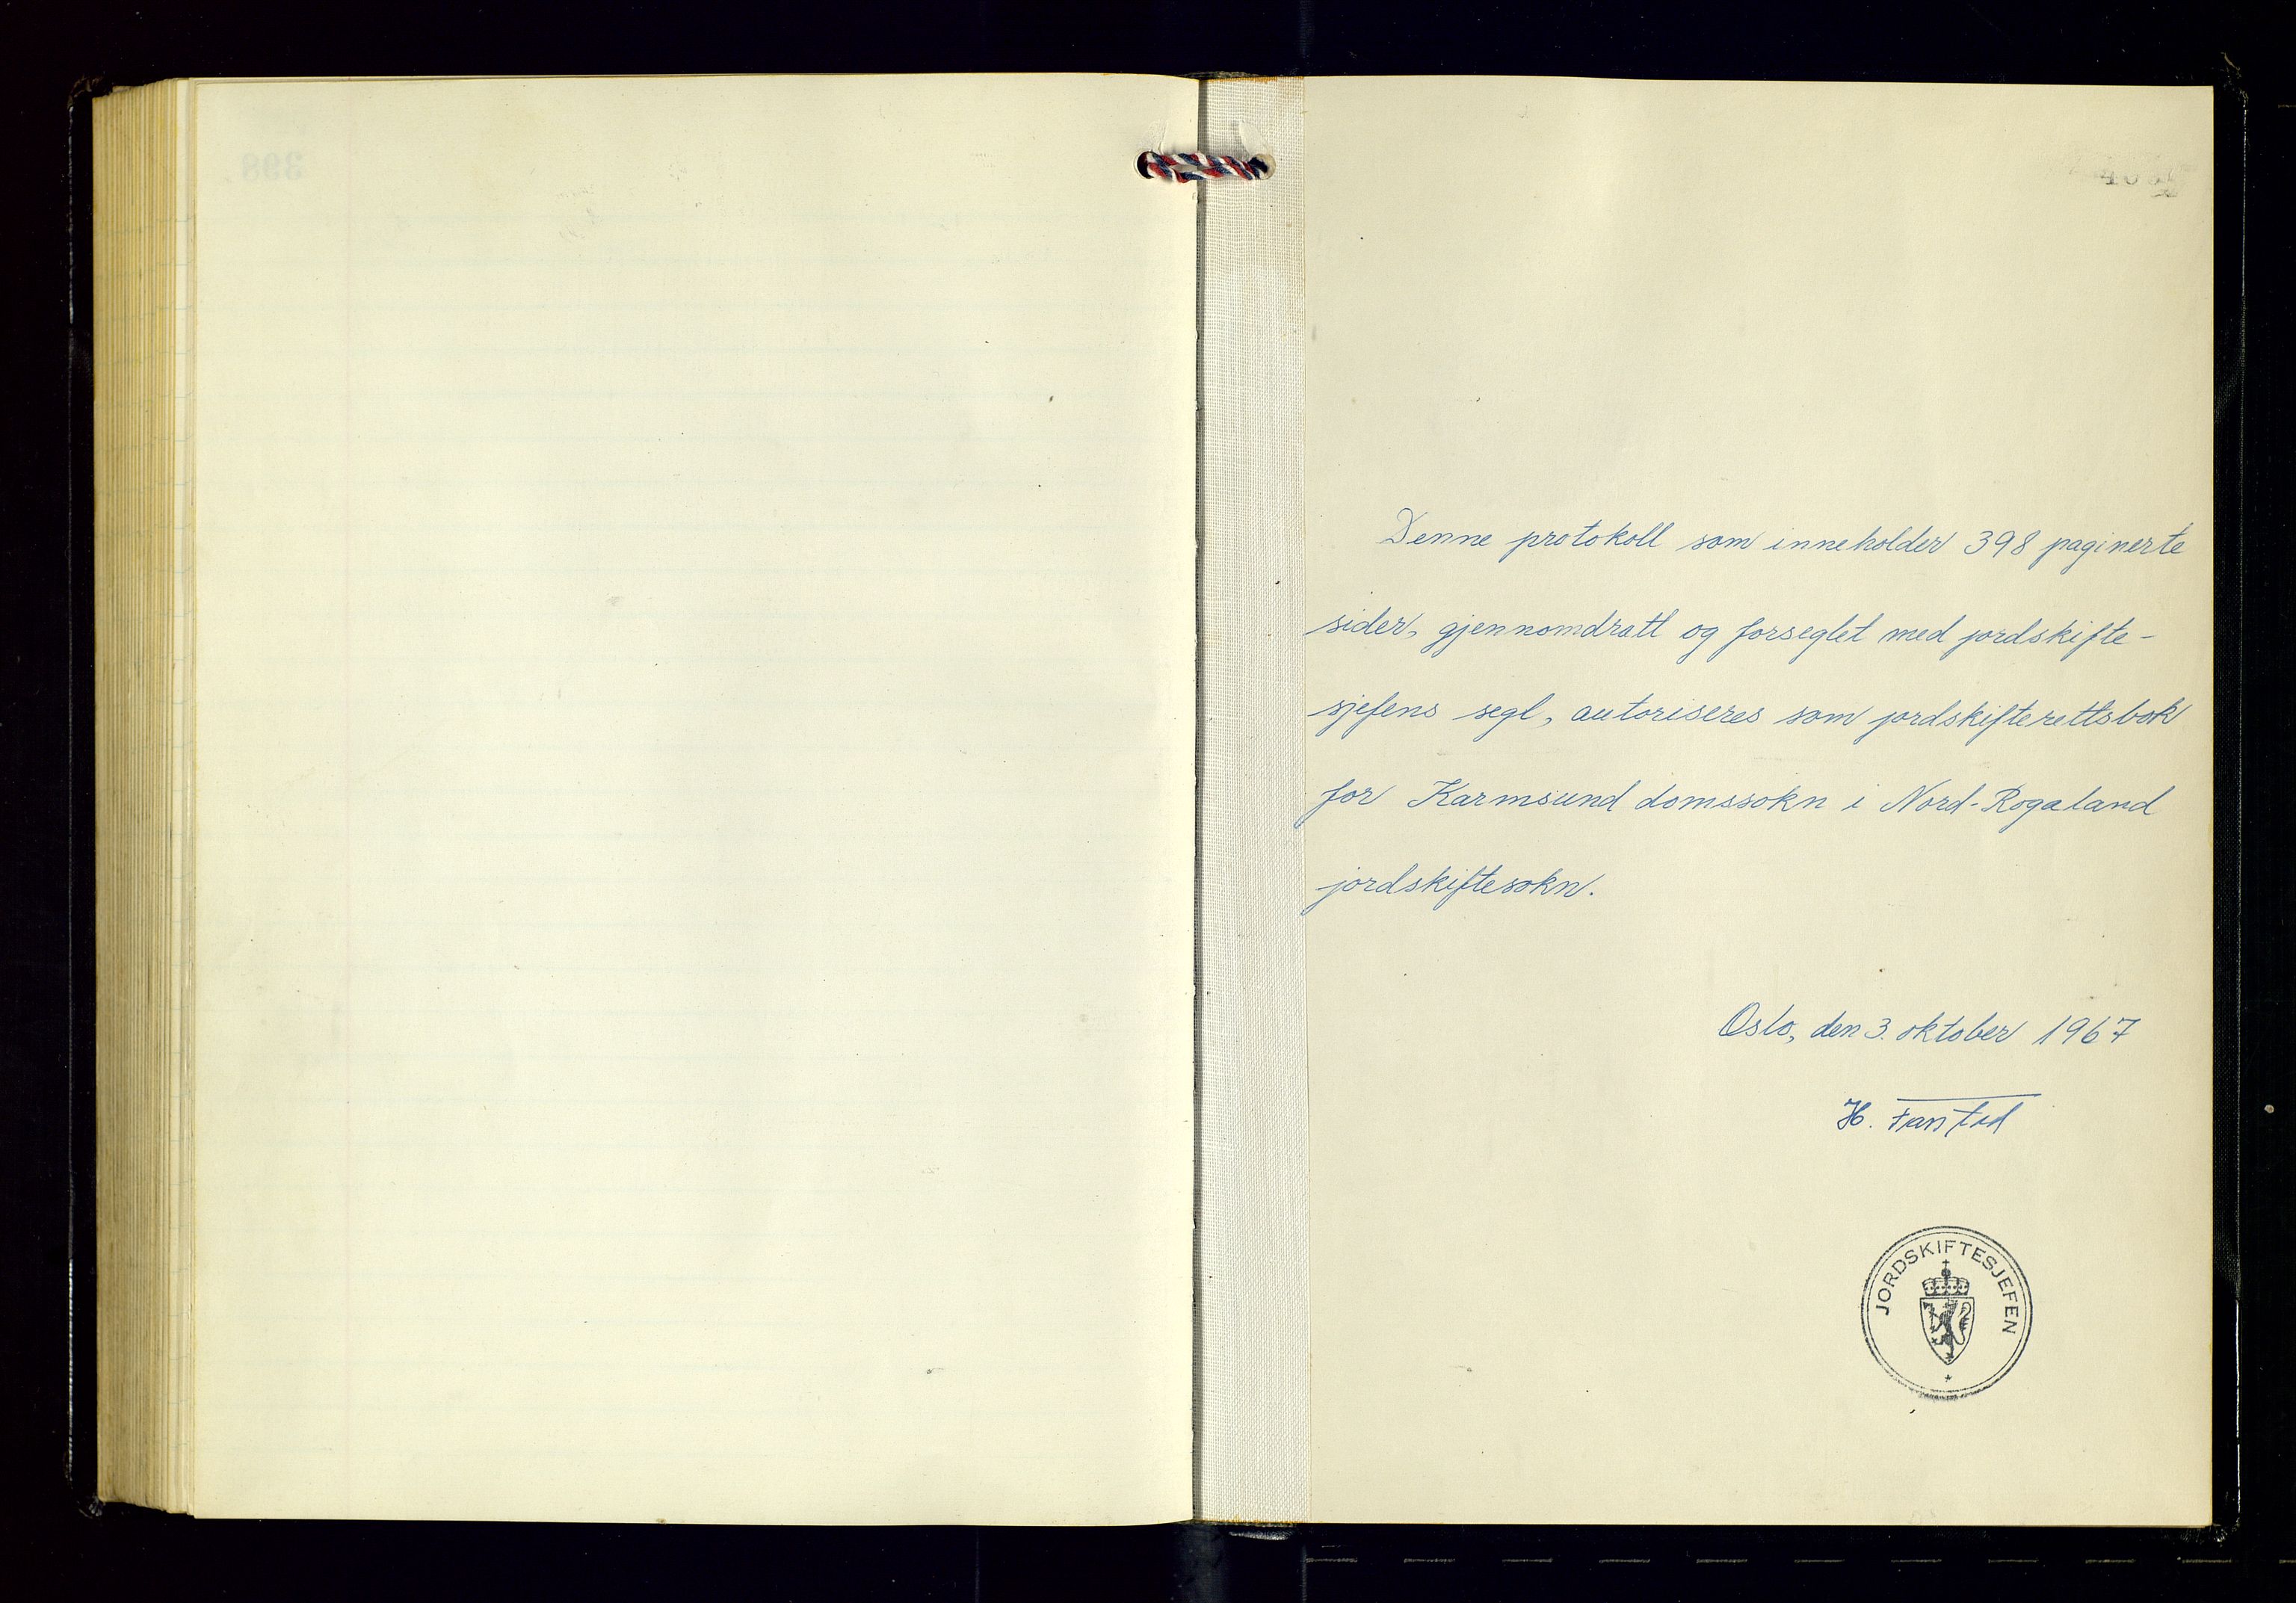 398
Denne protokoll som inneholder 398 paginerte
sider, gjennomdratt og forseglet med jordskifte-
sjefens segl, autoriseres som jordskifterettsbok
for Karmsund domssokn i Nord-Rogaland
jordskiftesokn.
Oslo, den 3. oktober 1967
H.
JORDSKIFTESJEFEN